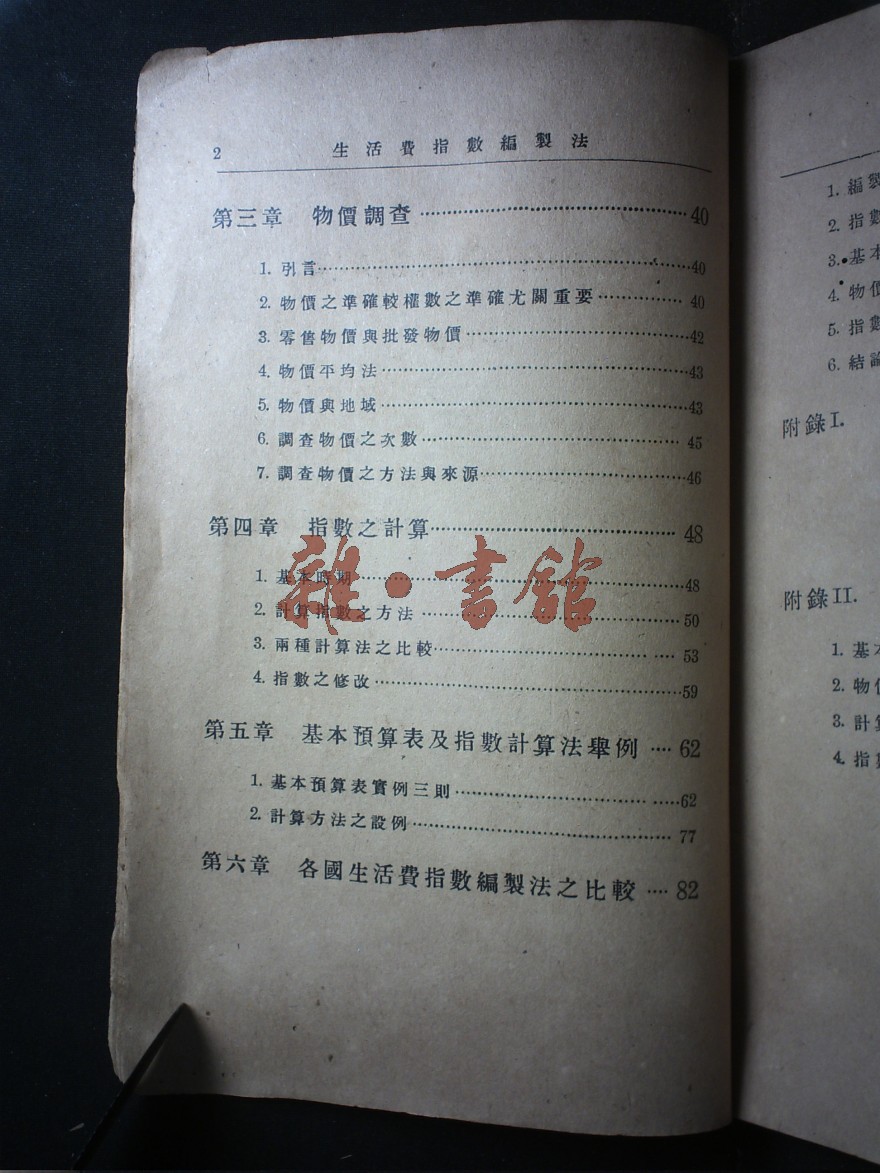 2 生活費指數編製法
第三章 物價調查 40
1. 引言 40
2. 物價之準確較權數之準確尤關重要 40
3. 零售物價與批發物價 42
4. 物價平均法 43
5. 物價與地域 43
6. 調查物價之次數 45
7. 調查物價之方法與來源 46
第四章 指數之計算 48
1. 基本時期 48
2. 計算指數之方法 50
3. 兩種計算法之比較 53
4. 指數之修改 59
第五章 基本預算表及指數計算法舉例 62
1. 基本預算表實例三則 62
2. 計算方法之設例 77
第六章 各國生活費指數編製法之比較 82
雜·書館
1. 編製
2. 指數
3. 基本
4. 物價
5. 指數
6. 結論
附錄 I.
附錄 II.
1. 基本
2. 物價
3. 計算
4. 指數